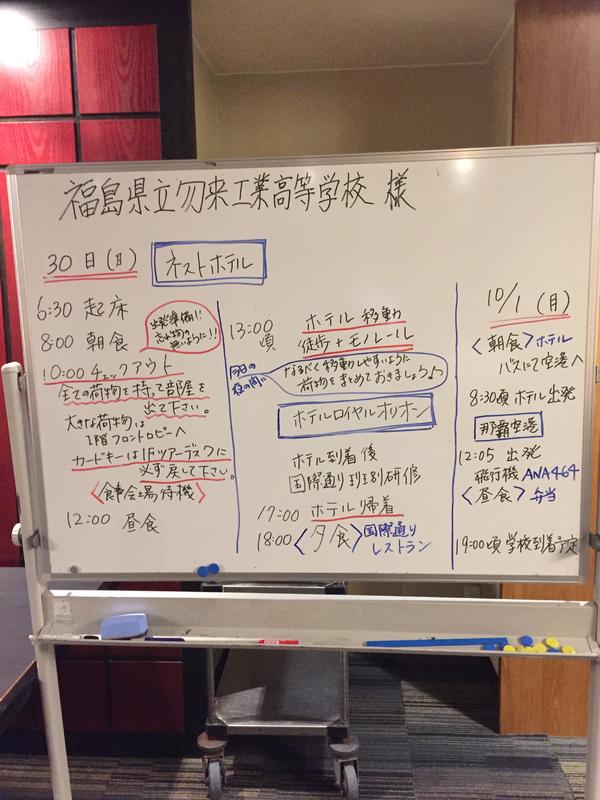 福島県立勿来工業高等学校 様
30日(日)
ネストホテル
6:30 起床
出発準備!!
忘れ物の
無いように!!
8:00 朝食
10:00 チェックアウト
全ての荷物を持って部屋を
出て下さい。
大きな荷物は
1階フロントロビーへ
カードキーは1Fツアーデスクに
必ず戻して下さい。
〈食事会場待機〉
12:00 昼食
13:00
頃
ホテル移動
徒歩+モノレール
今日の
夜の間に
なるべく移動しやすいように
荷物をまとめておきましょう♪
ホテルロイヤルオリオン
ホテル到着後
国際通り班別研修
17:00 ホテル帰着
18:00〈夕食〉国際通り
レストラン
10/1 (月)
〈朝食〉ホテル
バスにて空港へ
8:30頃 ホテル出発
那覇空港
12:05 出発
飛行機 ANA464
〈昼食〉弁当
19:00頃 学校到着予定